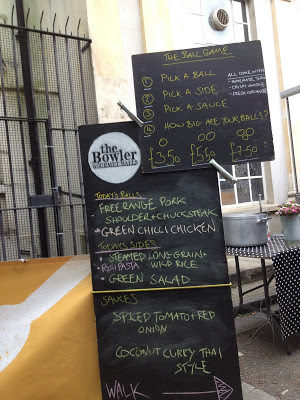 THE BALL GAME
1 PICK A BALL
2 PICK A SIDE
3 PICK A SAUCE
4 HOW BIG ARE YOUR BALLS?
ALL COME WITH
£3.50 £5.50 £7.50
the
Bowler
GOURMET BALLS
TODAY'S BALLS
FREE RANGE PORK
SHOULDER + CHUCK STEAK
GREEN CHILLI CHICKEN
TODAYS SIDES
STEAMED LONG-GRAIN +
WILD RICE
PASTA
GREEN SALAD
SAUCES
SPICED TOMATO + RED
ONION
COCONUT CURRY THAI
STYLE
WALK